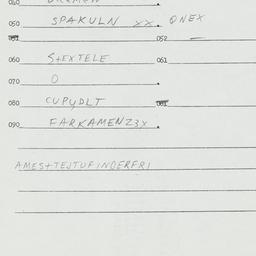 050 SPAKULN XX. QNEX
051 052 —
060 S+EXTELE 061
070 O
080 CUPYDLT 081
090 FARKAMENZ3X.
AMES+TEJTUFINDERFRI